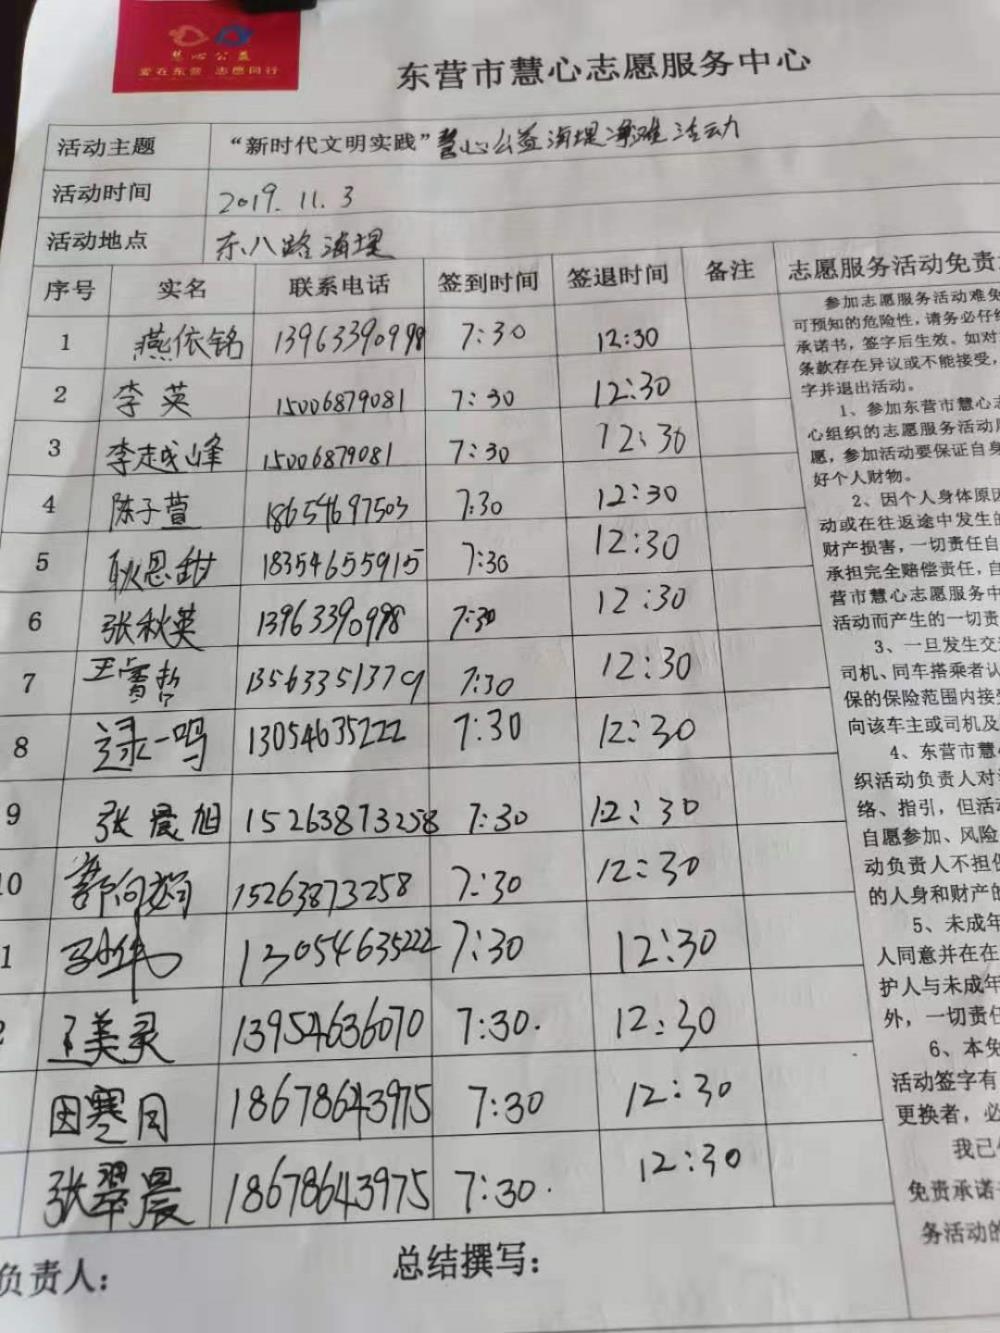 慧心公益
爱在东营 志愿同行
东营市慧心志愿服务中心
活动主题 “新时代文明实践”慧心公益海堤净滩活动
活动时间 2019.11.3
活动地点 东八路海堤
序号 实名 联系电话 签到时间 签退时间 备注
1 燕依铭 13963390998 7:30 12:30
2 李英 15006879081 7:30 12:30
3 李越峰 15006879081 7:30 12:30
4 陈子萱 18654697503 7:30 12:30
5 耿恩甜 18354655915 7:30 12:30
6 张秋英 13963390998 7:30 12:30
7 王 哲 13563351379 7:30 12:30
8 逯一鸣 13054635222 7:30 12:30
9 张晨旭 15263873258 7:30 12:30
10 郭向 15263873258 7:30 12:30
1 13054635222 7:30 12:30
2 王美灵 13954636070 7:30. 12:30
田寒月 18678643975 7:30 12:30
张翠晨 18678643975 7:30. 12:30
负责人： 总结撰写：
志愿服务活动免责
参加志愿服务活动难免
可预知的危险性，请务必仔
承诺书，签字后生效。如对
条款存在异议或不能接受，
字并退出活动。
1、参加东营市慧心志
心组织的志愿服务活动
愿，参加活动要保证自身
好个人财物。
2、因个人身体原因
动或在往返途中发生的
财产损害，一切责任自
承担完全赔偿责任，自
营市慧心志愿服务中
活动而产生的一切责
3、一旦发生交
司机、同车搭乘者认
保的保险范围内接受
向该车主或司机及
4、东营市慧心
织活动负责人对
络、指引，但活动
自愿参加、风险
动负责人不担保
的人身和财产的
5、未成年
人同意并在在
护人与未成年
外，一切责任
6、本免
活动签字有
更换者，必
我已
免责承诺
务活动的